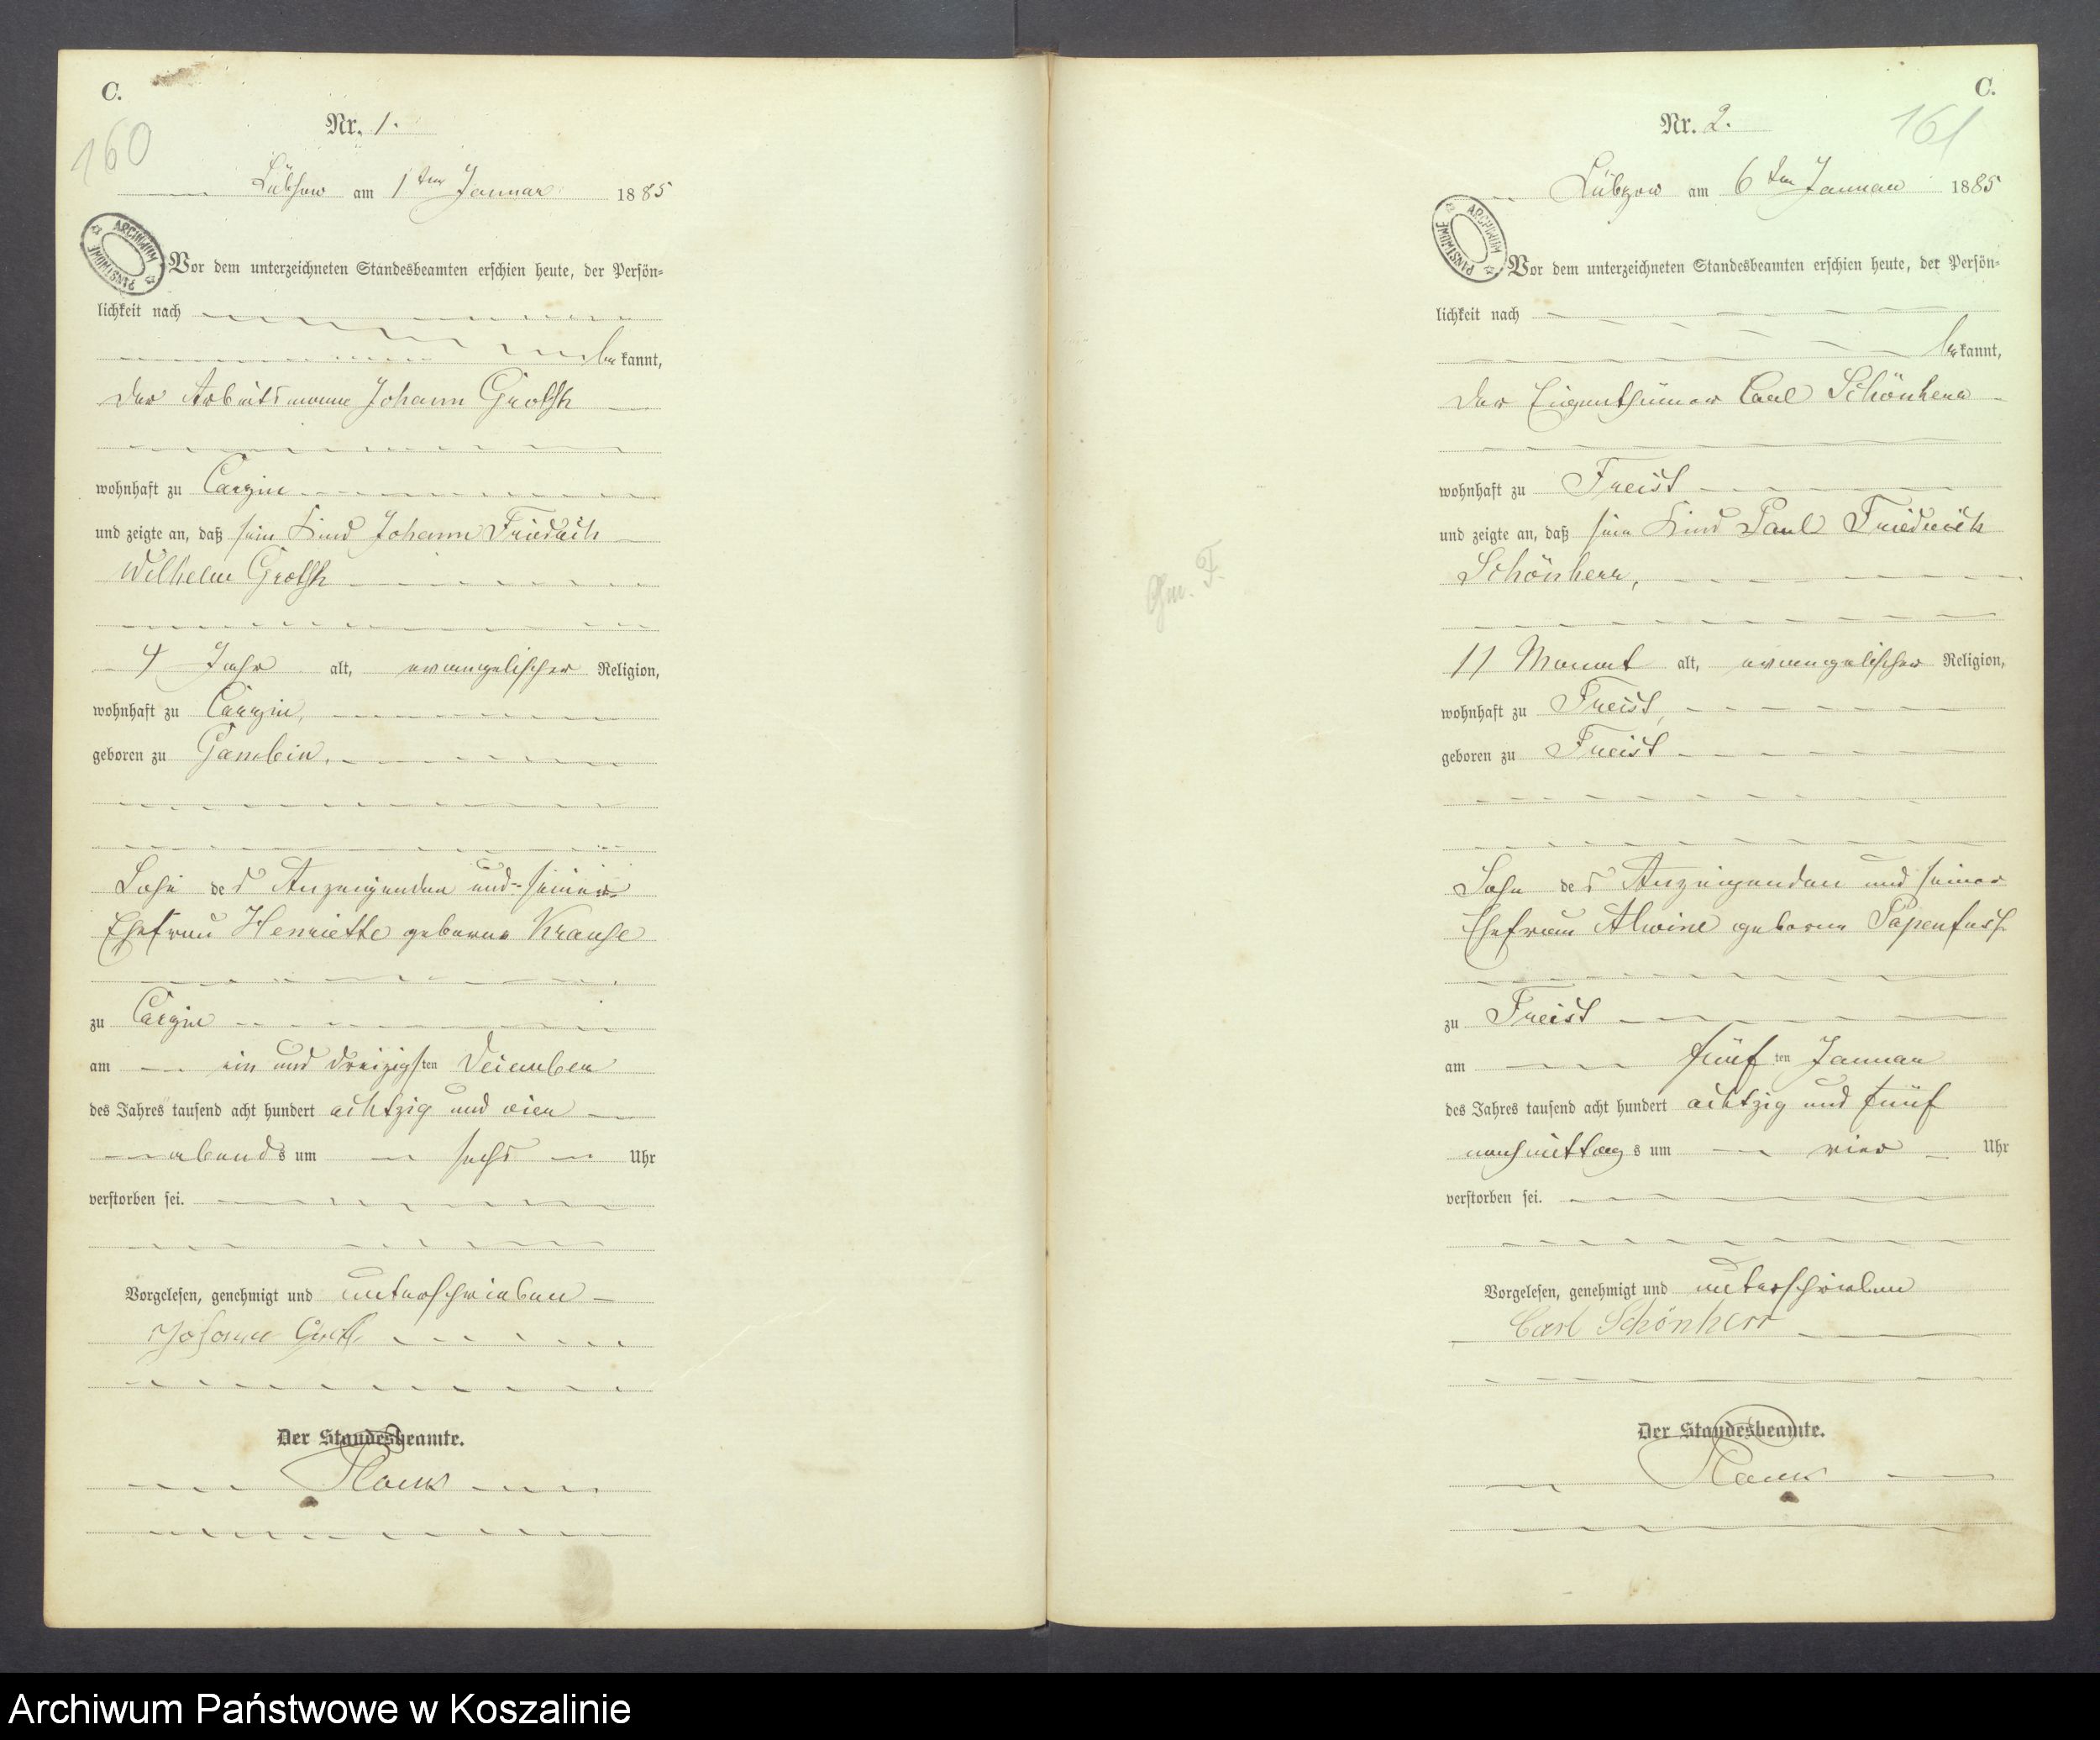 C.
160
Nr. 1.
Lübsow am 1ten Januar 1885
ARCHIWUM PAŃSTWOWE
Vor dem unterzeichneten Standesbeamten erschien heute, der Persön=
lichkeit nach
be kannt,
der Arbeitsmann Johann
wohnhaft zu Carzin
und zeigte an, daß sein Kind Johann Friedrich
Wilhelm
4 Jahr alt, evangelischer Religion,
wohnhaft zu Carzin,
geboren zu Gambin,
Sohn des Anzeigenden und seiner
Ehefrau Henriette geborne Krause
zu Carzin
am ein und dreizigsten Dezember
des Jahres tausend acht hundert achtzig und vier
abends um sechs Uhr
verstorben sei.
Vorgelesen, genehmigt und unterschrieben
Johann
Der Standesbeamte.
C.
161
Nr. 2.
Lübzow am 6ten Januar 1885
ARCHIWUM PAŃSTWOWE
Vor dem unterzeichneten Standesbeamten erschien heute, der Persön=
lichkeit nach
be kannt,
der Eigenthümer Carl Schönherr
wohnhaft zu Freist
und zeigte an, daß sein Kind Paul Friedrich
Schönherr,
Gm. F.
11 Monat alt, evangelischer Religion,
wohnhaft zu Freist,
geboren zu Freist
Sohn des Anzeigenden und seiner
Ehefrau Alwine geborne Papenfuss
zu Freist
am fünf ten Januar
des Jahres tausend acht hundert achtzig und fünf
nachmittags um vier Uhr
verstorben sei.
Vorgelesen, genehmigt und unterschrieben
Carl Schönherr
Der Standesbeamte.
Archiwum Państwowe w Koszalinie